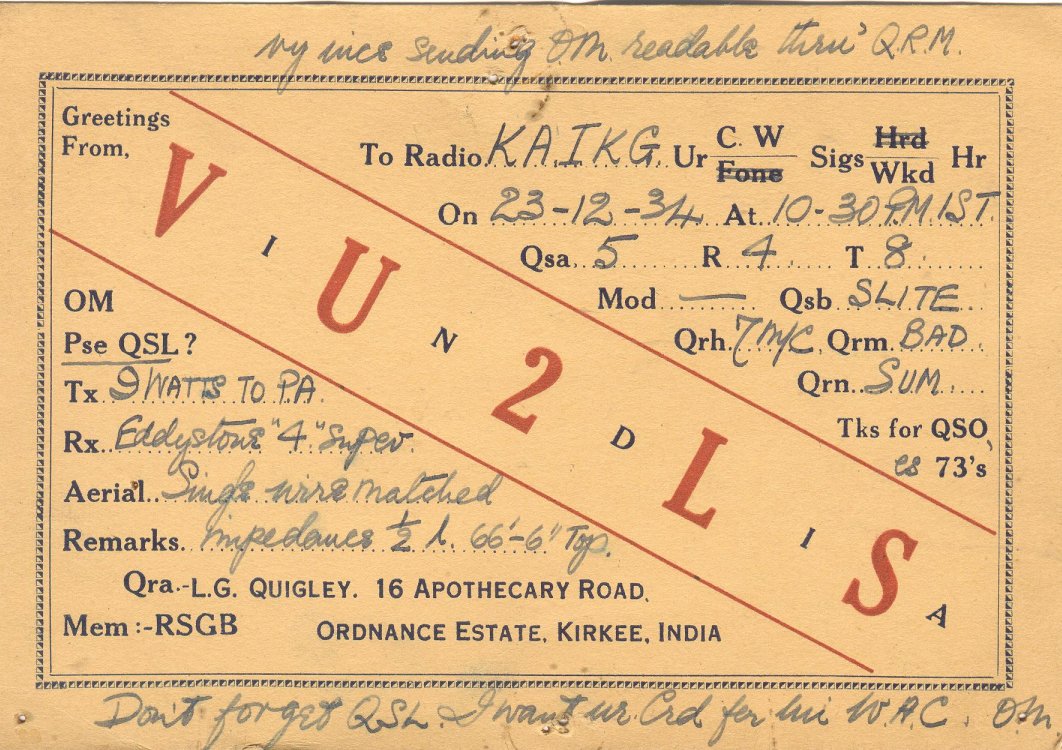 vy nice sending O.M. readable thru' Q.R.M.
Greetings
From,
V U 2 L S
I N D I A
To Radio KA1KG Ur C.W Fone Sigs Hrd Wkd Hr
On 23-12-34 At 10-30 P.M. IST.
Qsa 5 R 4 T 8
Mod — Qsb SLITE
Qrh 7 M/C. Qrm. BAD
Qrn. SUM
Tks for QSO,
es 73's
OM
Pse QSL?
Tx 9 WATTS TO P.A.
Rx. Eddystone "4" super.
Aerial. Single wire matched
Remarks. impedance ½ λ. 66'-6" Top.
Qra.-L.G. QUIGLEY. 16 APOTHECARY ROAD,
Mem:-RSGB ORDNANCE ESTATE, KIRKEE, INDIA
Don't forget QSL. I want ur Crd fer mi W.A.C. O.M.